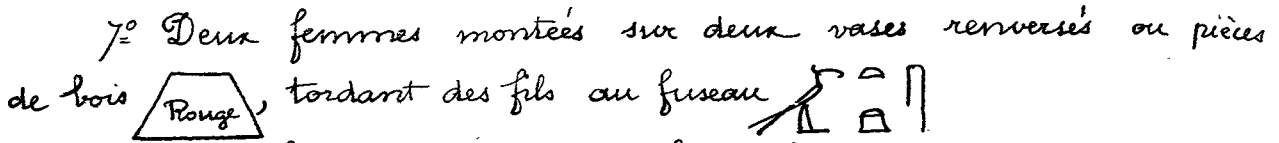 7º Deux femmes montées sur deux vases renversés ou pièces
de bois Rouge, tordant des fils au fuseau